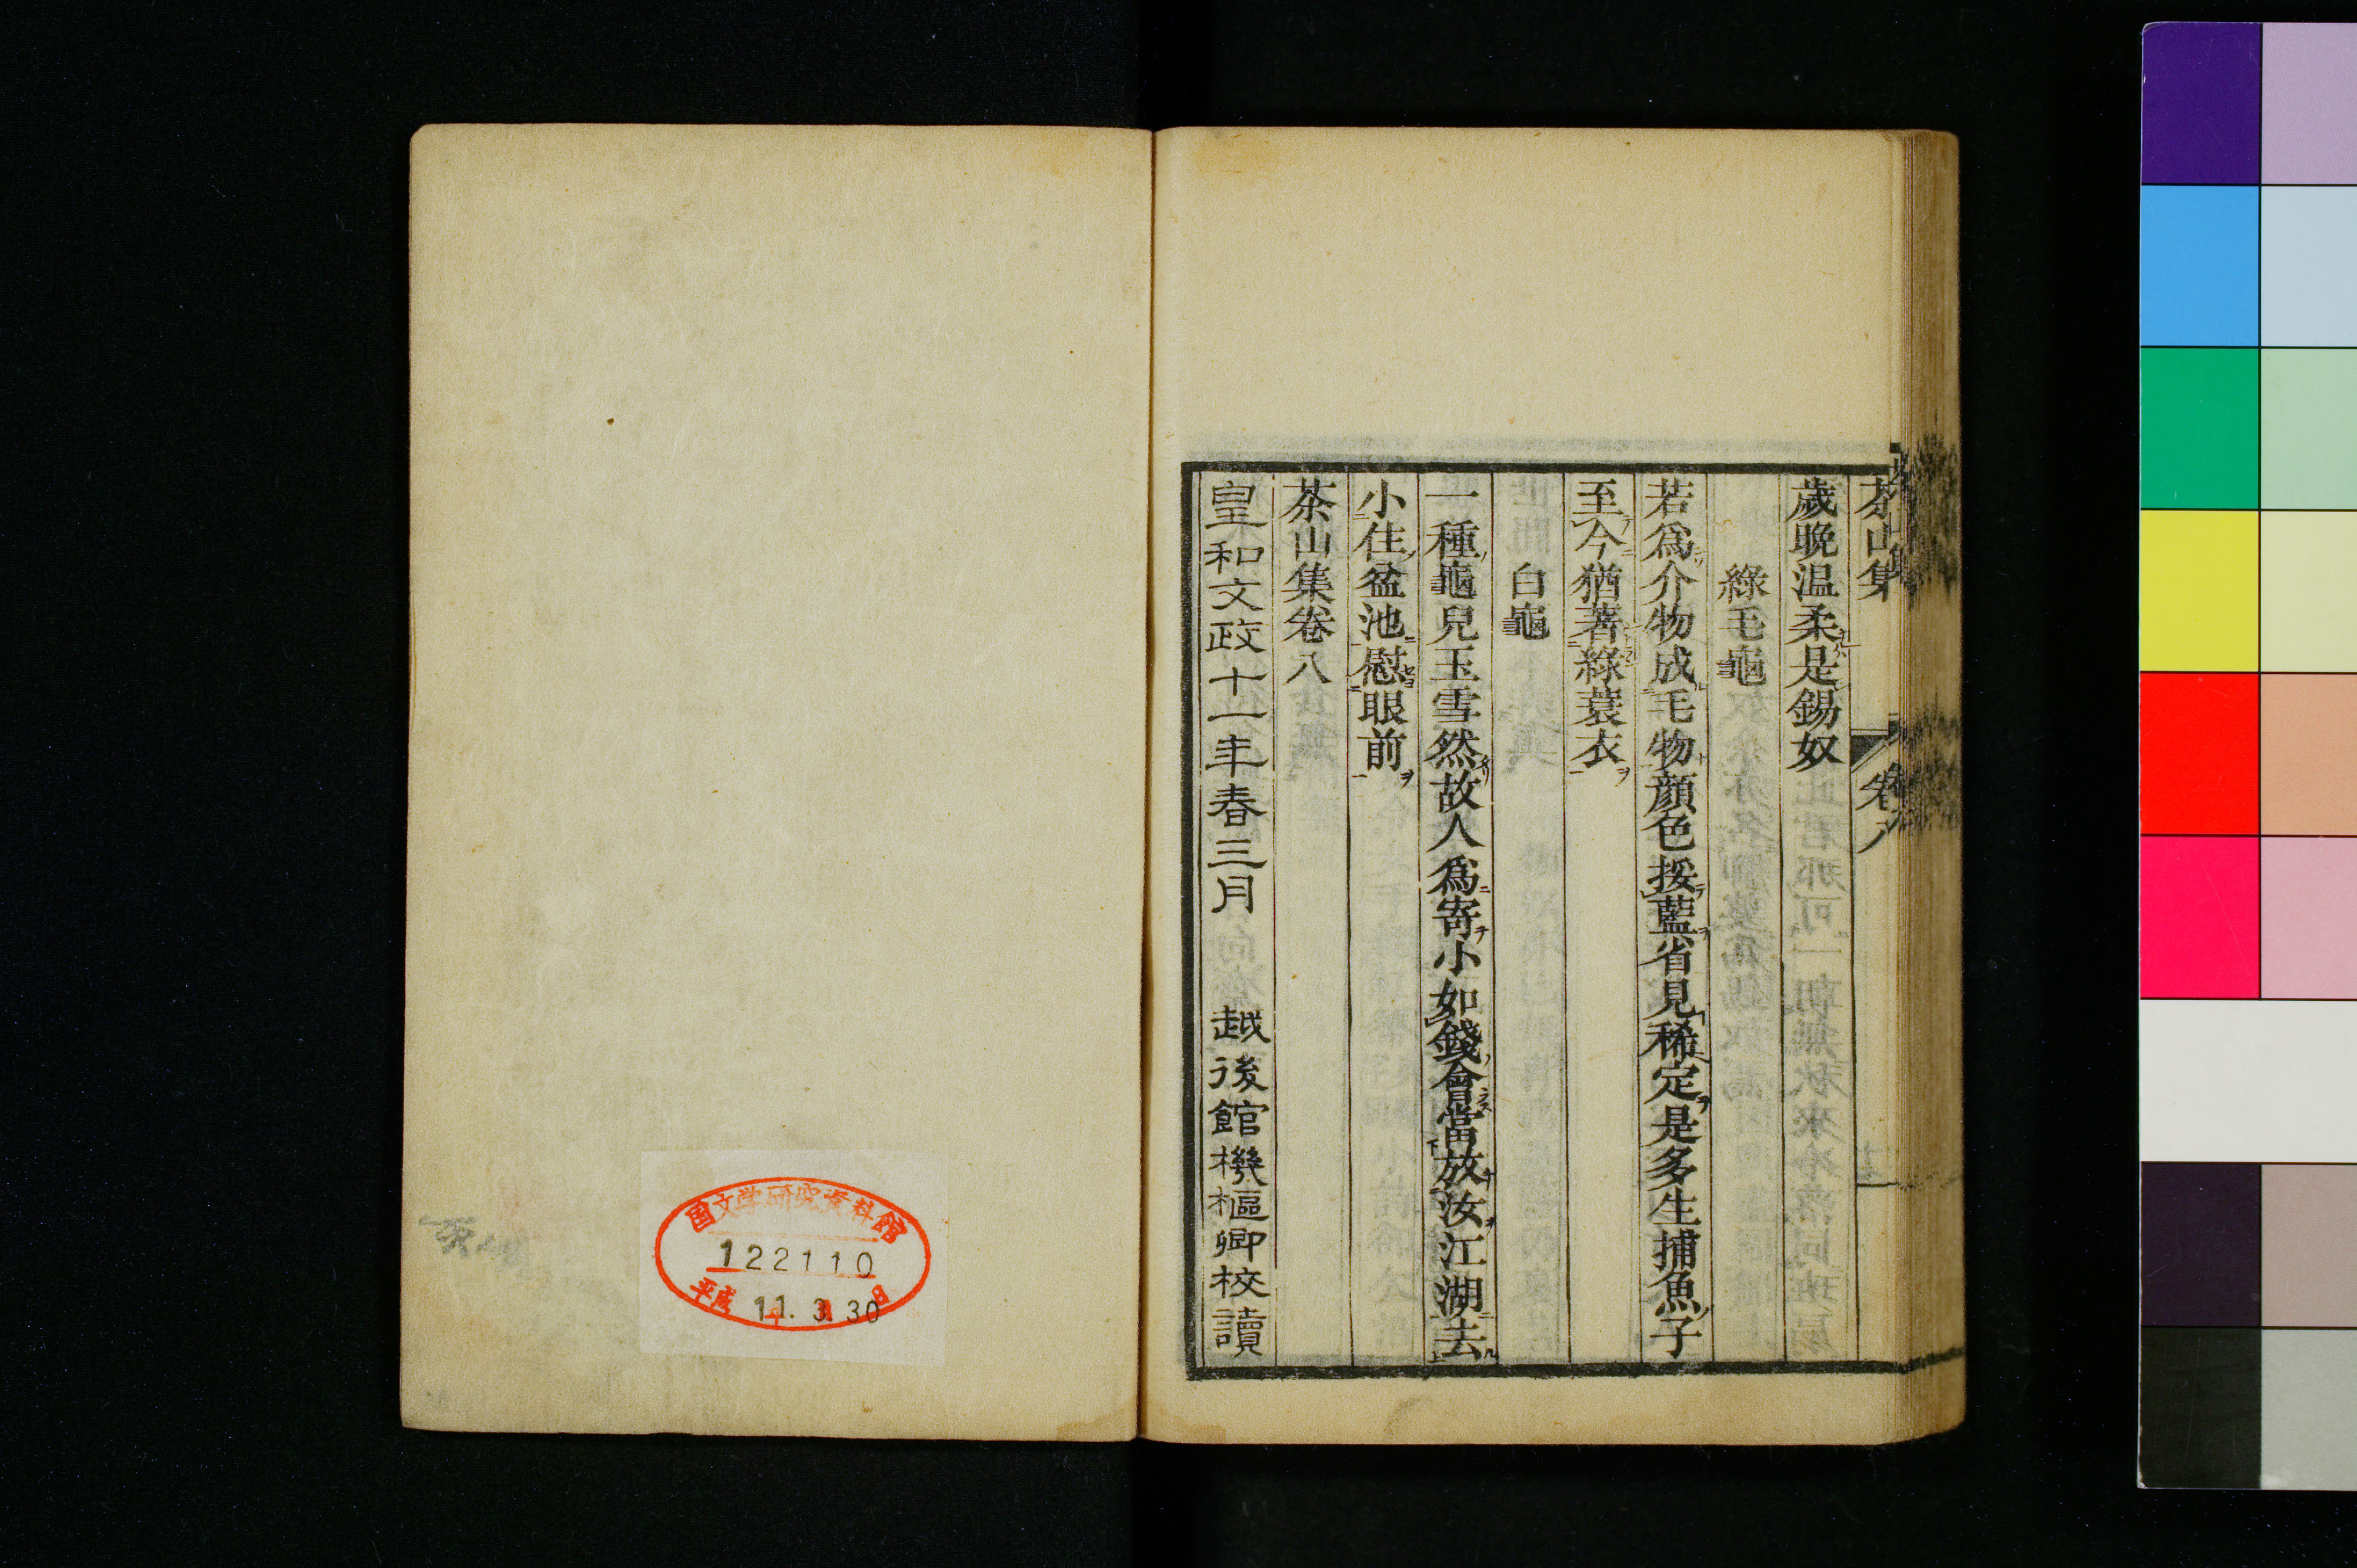 茶山集 卷八
歲晩温柔是錫奴
綠毛龜
若爲介物成毛物顔色挼藍省見稀定是多生捕魚子
至今猶著綠蓑衣
白龜
一種龜兒玉雪然故人爲寄小如錢會當放汝江湖去
小住盆池慰眼前
茶山集卷八
皇和文政十一年春三月 越後館機樞卿校讀
国文学研究資料館
122110
平成 11. 3. 30